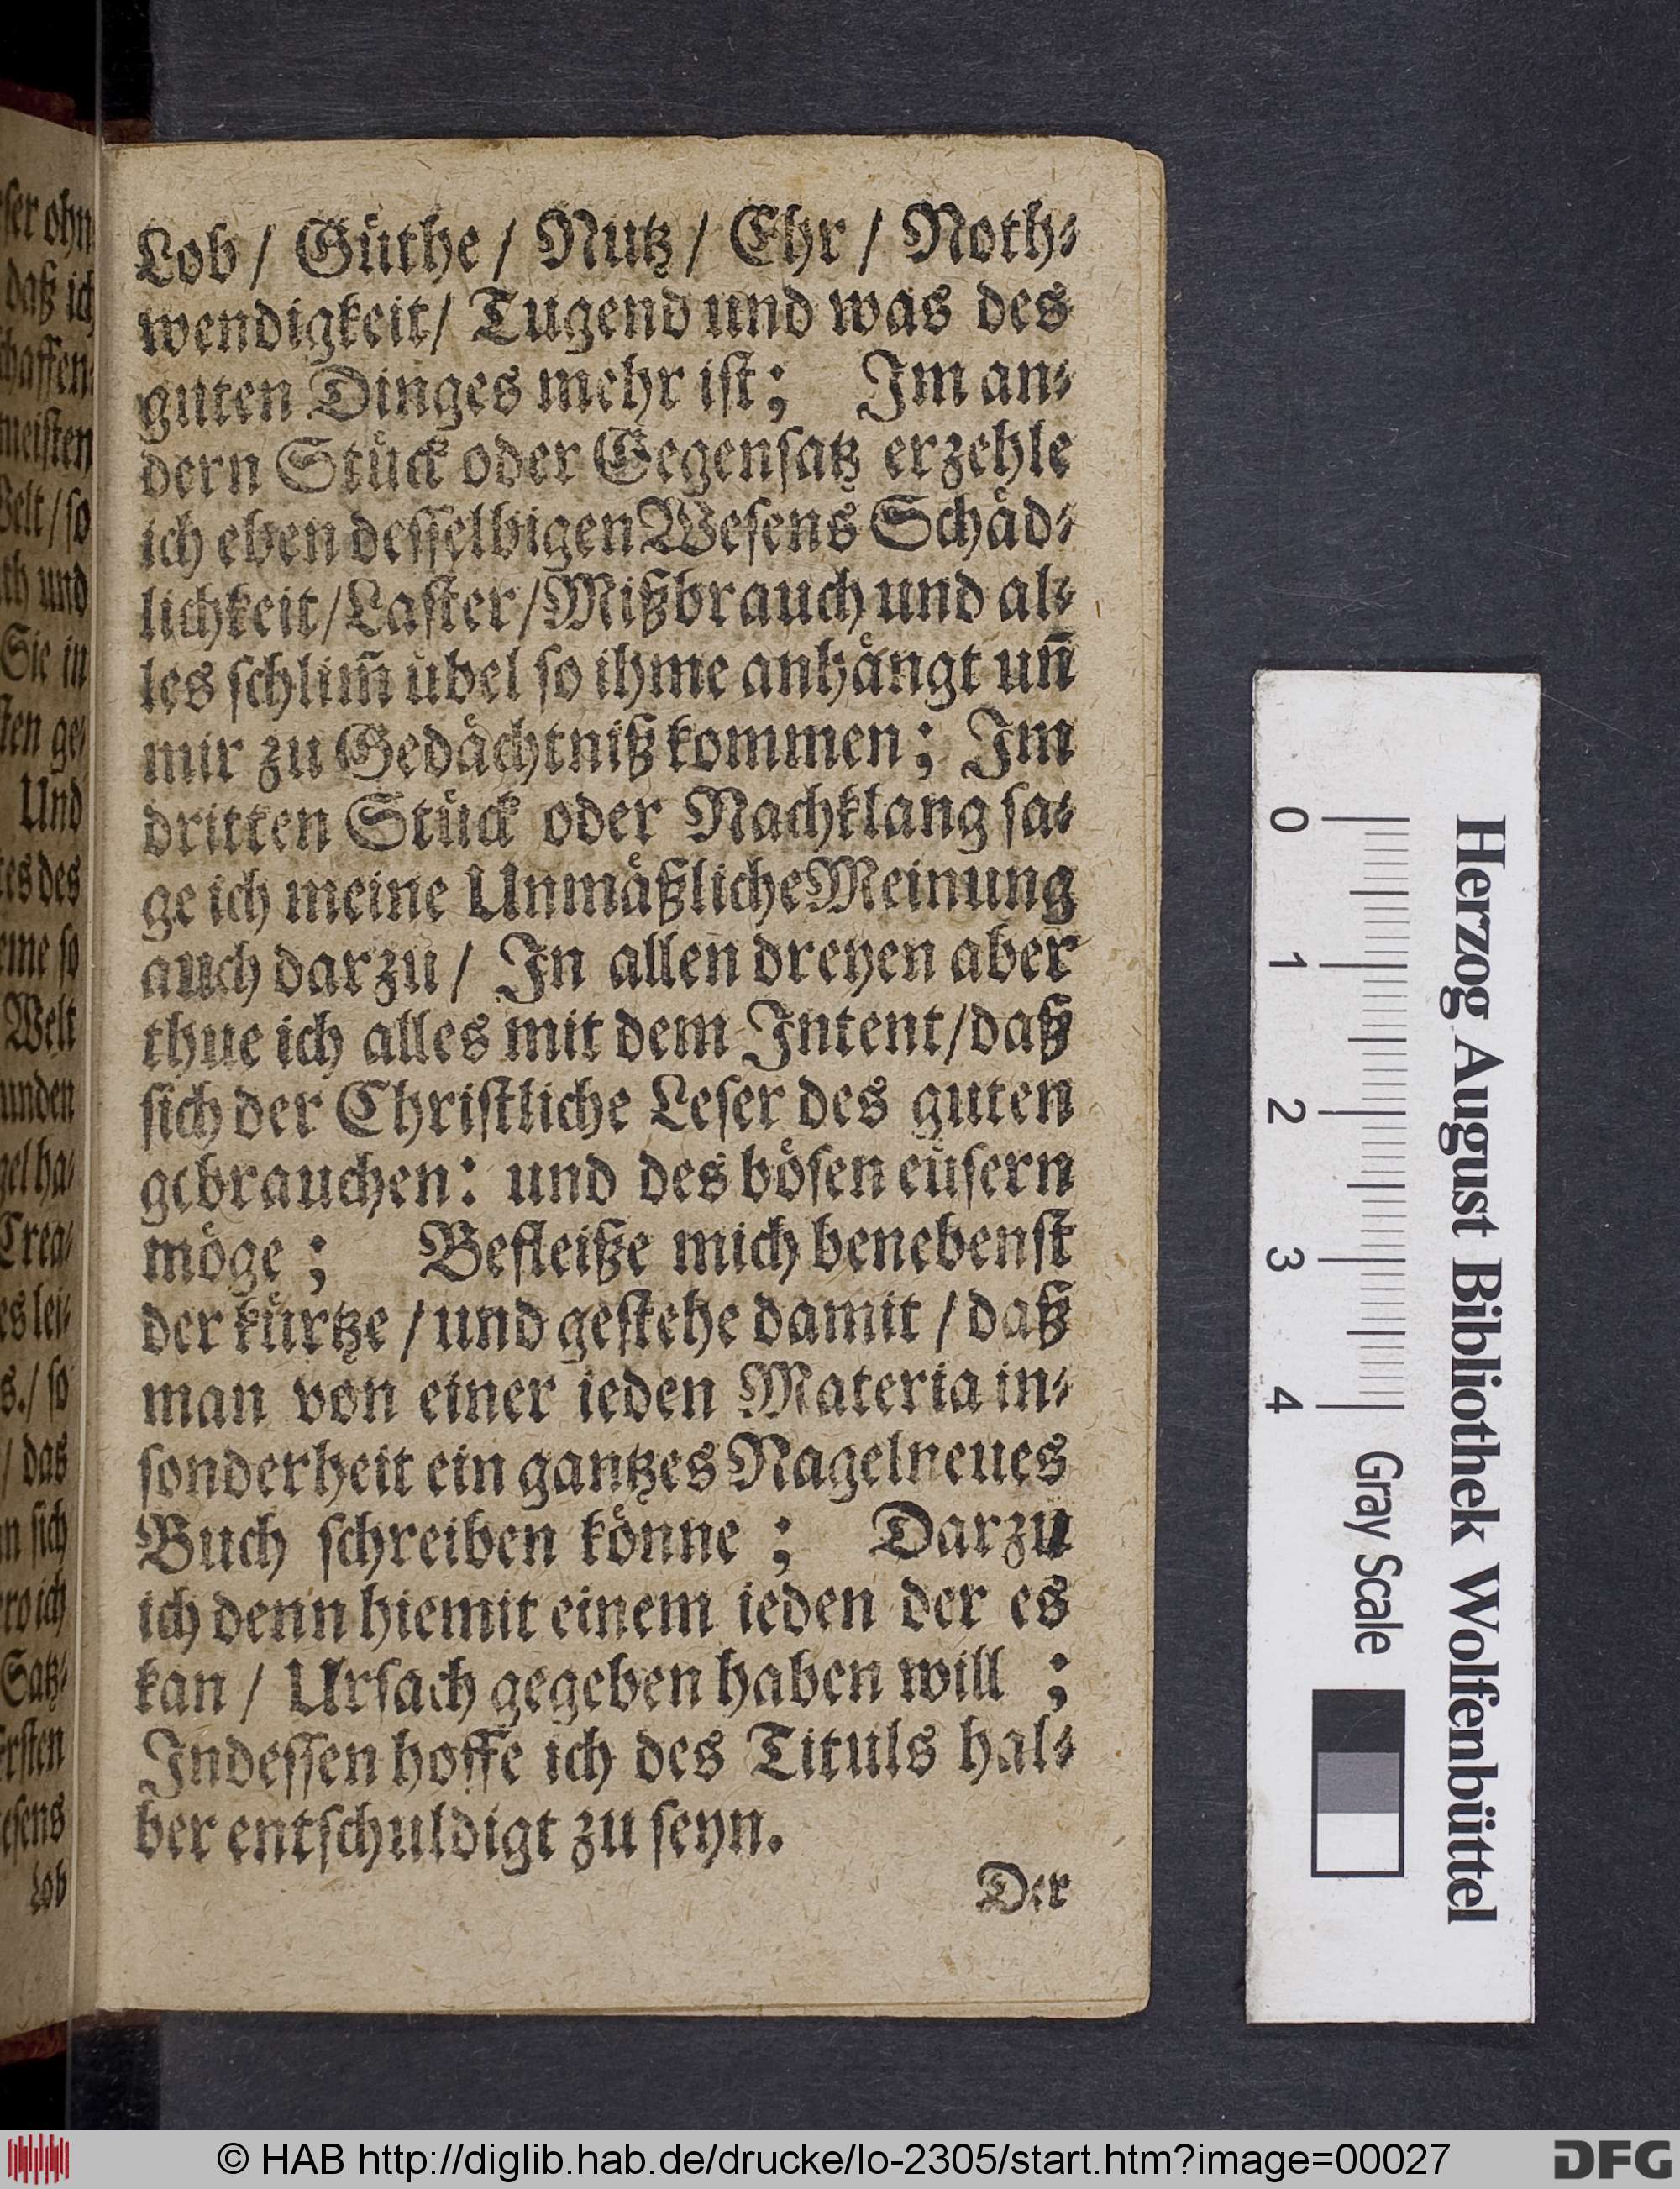 Lob / Güthe / Nutz / Ehr / Noth-
wendigkeit / Tugend und was des
guten Dinges mehr ist; Im an-
dern Stück oder Gegensatz erzehle
ich eben desselbigen Wesens Schäd-
lichkeit / Laster / Mißbrauch und al-
les schlim̄ übel so ihme anhängt un̄
mir zu Gedächtniß kommen; Im
dritten Stück oder Nachklang sa-
ge ich meine Unmäßliche Meinung
auch darzu / In allen dreyen aber
thue ich alles mit dem Intent / daß
sich der Christliche Leser des guten
gebrauchen: und des bösen eüsern
möge ; Befleiße mich benebenst
der kürtze / und gestehe damit / daß
man von einer ieden Materia in-
sonderheit ein gantzes Nagelneues
Buch schreiben könne ; Darzu
ich denn hiemit einem ieden der es
kan / Ursach gegeben haben will ;
Indessen hoffe ich des Tituls hal-
ber entschuldigt zu seyn.
Der
Herzog August Bibliothek Wolfenbüttel
0 1 2 3 4 Gray Scale
© HAB http://diglib.hab.de/drucke/lo-2305/start.htm?image=00027
DFG